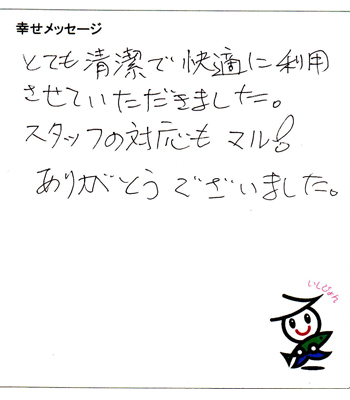 幸せメッセージ
とても清潔で快適に利用
させていただきました。
スタッフの対応もマル!
ありがとうございました。